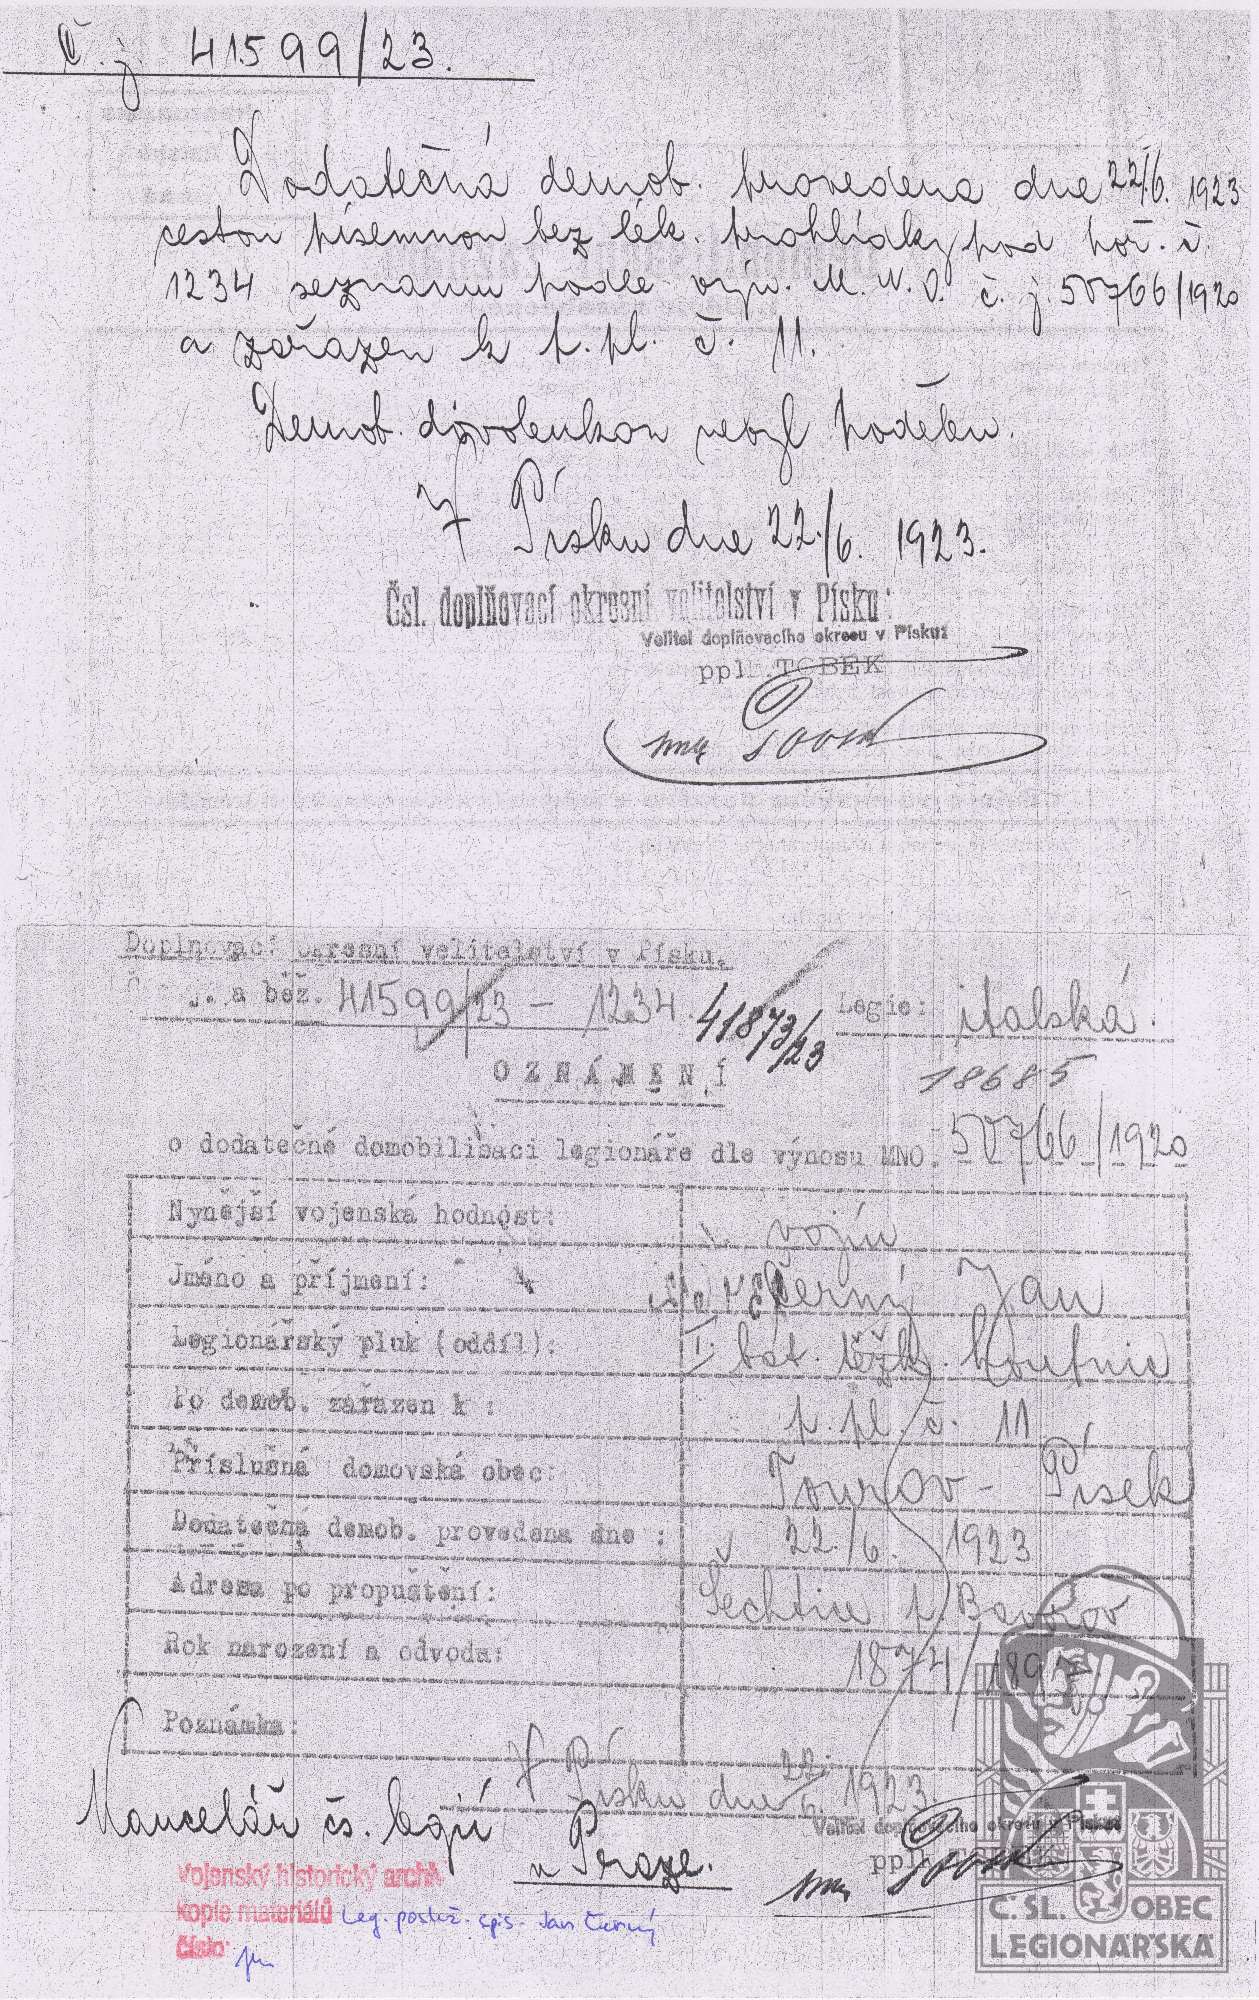 Č. j. 41599/23.
Dodatečná demob. provedena dne 22./6. 1923
cestou písemnou bez lék. prohlídky pod poř. č.
1234 seznamu podle výn. M. N. O. č. j. 50766/1920
a zařazen k p. pl. č. 11.
Demob. dovolenkou nebyl podělen.
V Písku dne 22./6. 1923.
Čsl. doplňovací okresní velitelství v Písku:
Velitel doplňovacího okresu v Písku:
pplk. TOBEK
Doplňovací okresní velitelství v Písku.
Č. j. a běž. 41599/23 - 1234. 41873/23
Legie: italská.
18685
OZNÁMENÍ
o dodatečné domobilisaci legionáře dle výnosu MNO. 50766/1920
Nynější vojenská hodnost: vojín
Jméno a příjmení: Černý Jan
Legionářský pluk (oddíl): I. bat. těžk. houfnic
Po demob. zařazen k : p. pl. č. 11
Příslušná domovská obec: Tourov - Písek
Dodatečná demob. provedena dne : 22./6. 1923
Adresa po propuštění: Šechtin p. Bavorov
Rok narození a odvodu: 1874/1897
Poznámka:
V Písku dne 22./6. 1923.
Velitel doplňovacího okresu v Písku:
pplk.
Kancelář čs. legií
v Praze.
Vojenský historický archiv
kopie materiálů Leg. poslež. spis - Jan Černý
číslo:
Č.SL. OBEC
LEGIONÁŘSKÁ